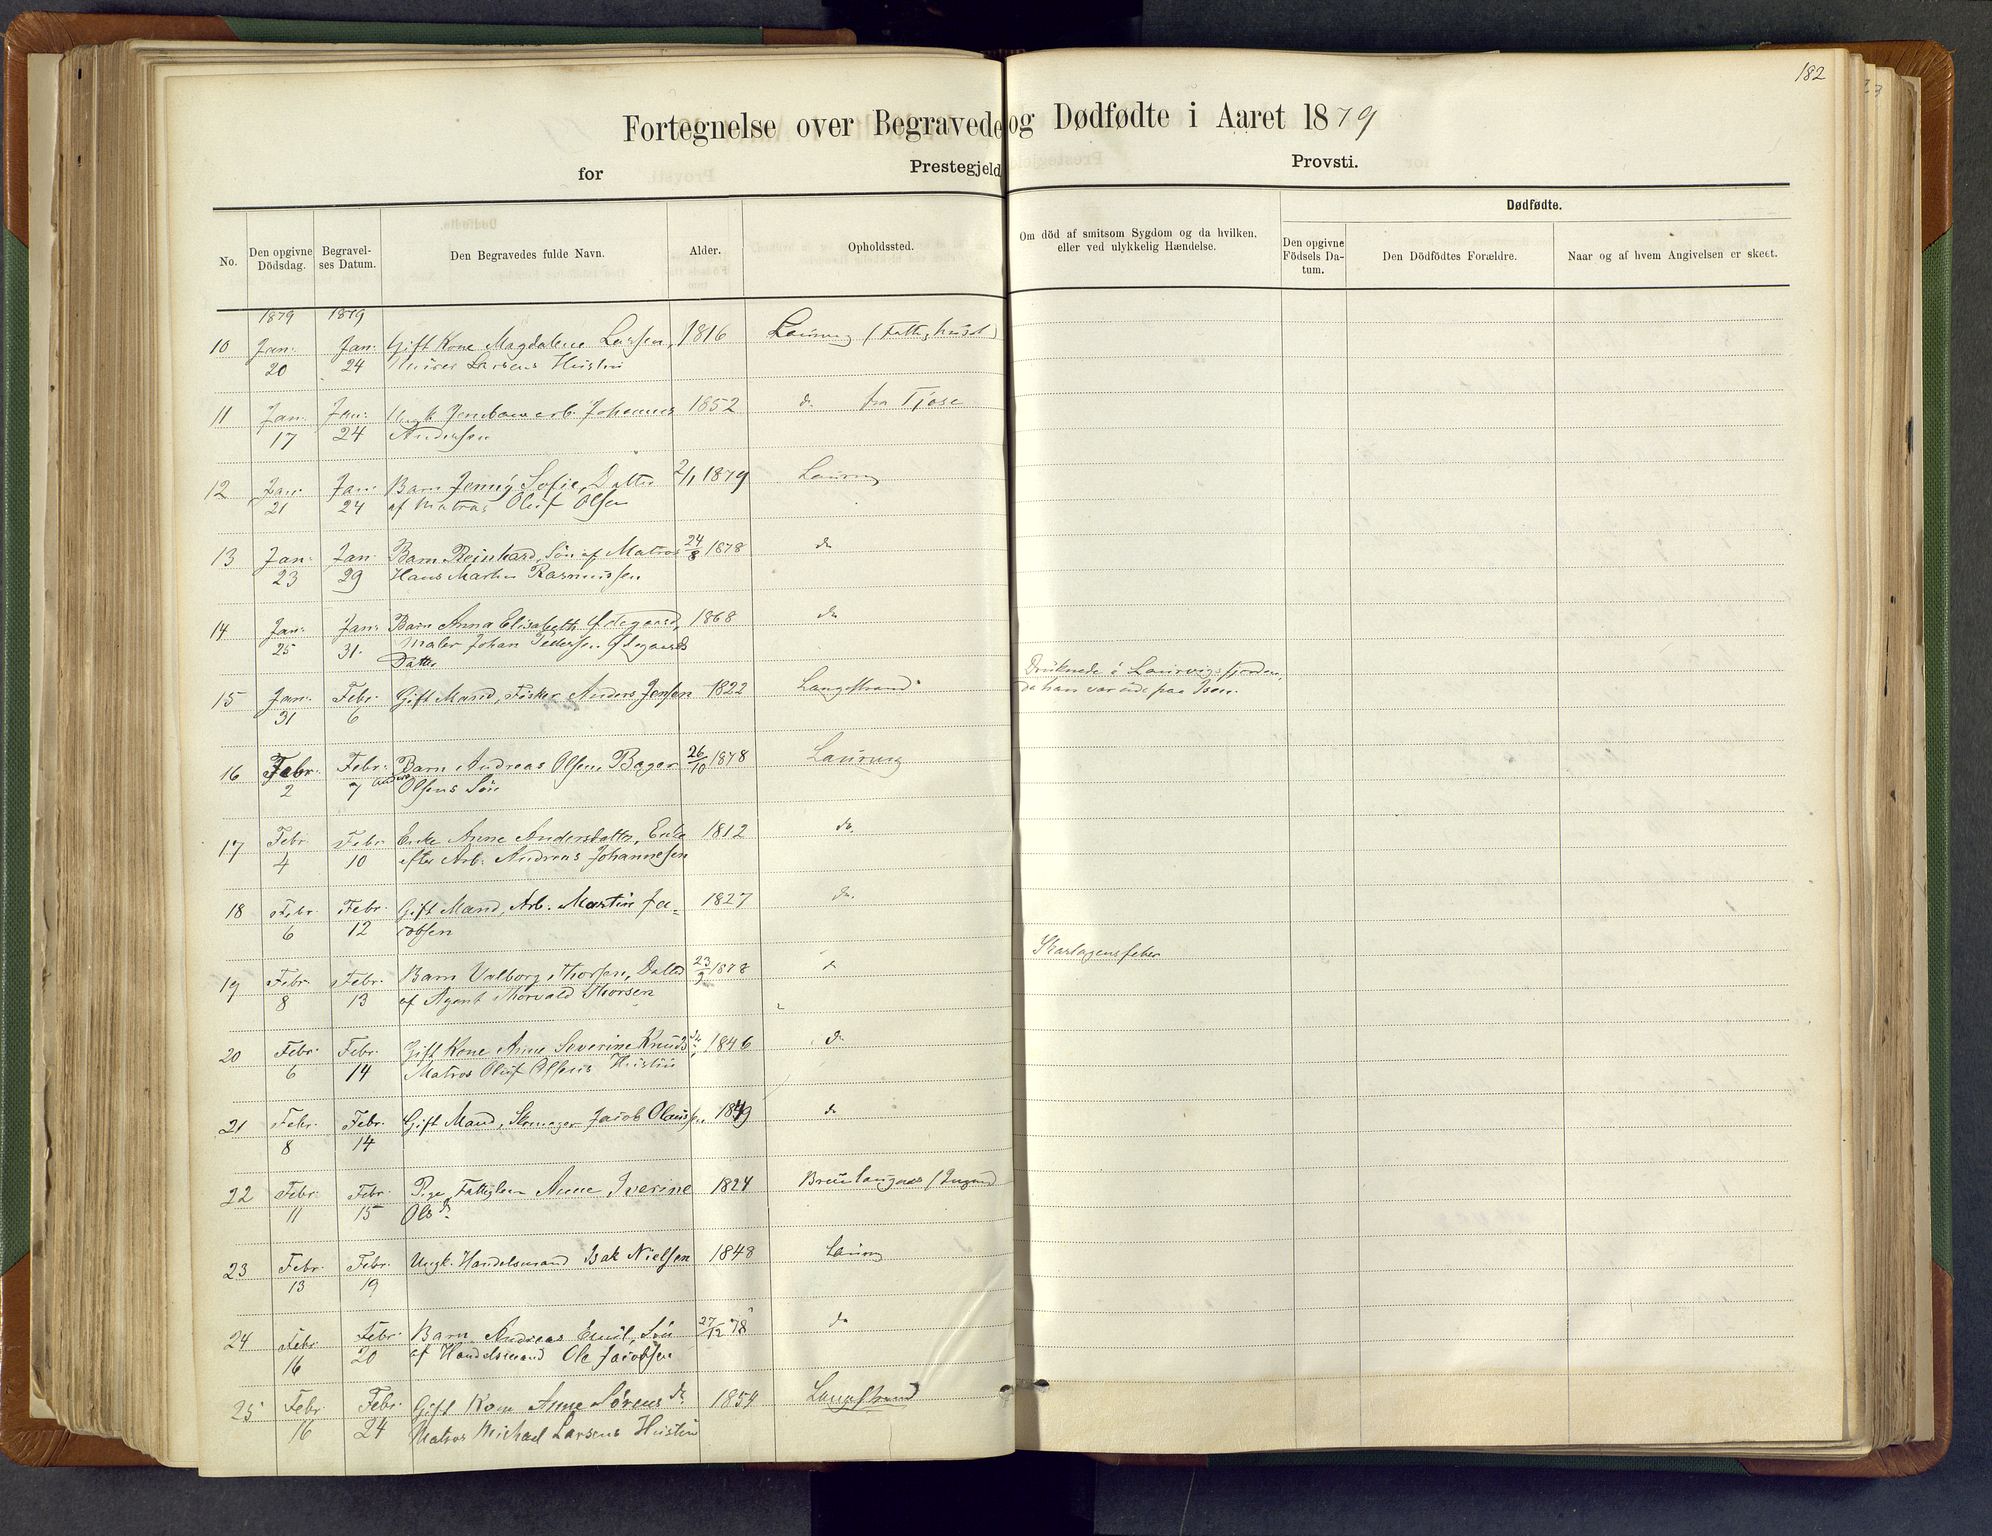 182
Fortegnelse over Begravede og Dødfødte i Aaret 1879
for Prestegjeld Provsti.
No. Den opgivne Dödsdag. Begravelses Datum. Den Begravedes fulde Navn. Alder. Opholdssted. Om död af smitsom Sygdom og da hvilken, eller ved ulykkelig Hændelse. Dødfødte. Den opgivne Födsels Datum. Den Dödfödtes Forældre. Naar og af hvem Angivelsen er skeet.
1879 1879
10 Jan: Jan: Gift Kone Magdalene Larsen, 1816 Laurvig (Fattighuset)
20 24 Larsens Hustru
11 Jan: Jan: Ungk. Jernbanearb. Johannes 1852 do fra Tjose
17 24 Andersen
12 Jan: Jan: Barn Jenny Sofie, Datter 2/1 1879 Laurvig
21 24 af Matros Oluf Olsen
13 Jan: Jan: Barn Reinhard, Sön af Matros 24/8 1878 do
23 29 Hans Martin Rasmussen
14 Jan: Jan: Barn Anna Elisabeth Ødegaard, 1868 do
25 31. Maler Johan Pedersen Ødegaards
Datter
15 Jan: Febr. Gift Mand, Fisker Anders Jensen 1822 Langestrand Druknede i Laurvigsfjorden,
31 6 da han var ude paa Isen.
16 Febr. Febr. Barn Andreas Olsen, Bager 26/10 1878 Laurvig
2 7 Anders Olsens Sön
17 Febr. Febr. Enke Anne Andersdatter, Enke 1812 do
4 10 efter Arb. Andreas Johannesen
18 Febr. Febr. Gift Mand, Arb. Martin Ja- 1827 do
6 12 cobsen
19 Febr. Febr. Barn Valborg Thorsen, Datter 23/9 1878 do Skarlagensfeber
8 13 af Agent Thorvald Thorsen
20 Febr. Febr. Gift Kone Anne Severine Knudsdr. 1846 do
6 14 Matros Oluf Olsens Hustru
21 Febr. Febr. Gift Mand, Skomager Jacob Olaussen 1849 do
8 14
22 Febr. Febr. Pige, Fattiglem Anne Iverine 1824 Brunlaugnæs
11 15 Olsdr.
23 Febr. Febr. Ungk. Handelsmand Isak Nielsen 1848 Laurvig
13 19
24 Febr. Febr. Barn Andreas Emil, Sön 27/12 78 do
16 20 af Handelsmand Ole Jacobsen
25 Febr. Febr. Gift Kone Anne Sörensdr. 1854 Langestrand
16 24 Matros Michael Larsens Hustru